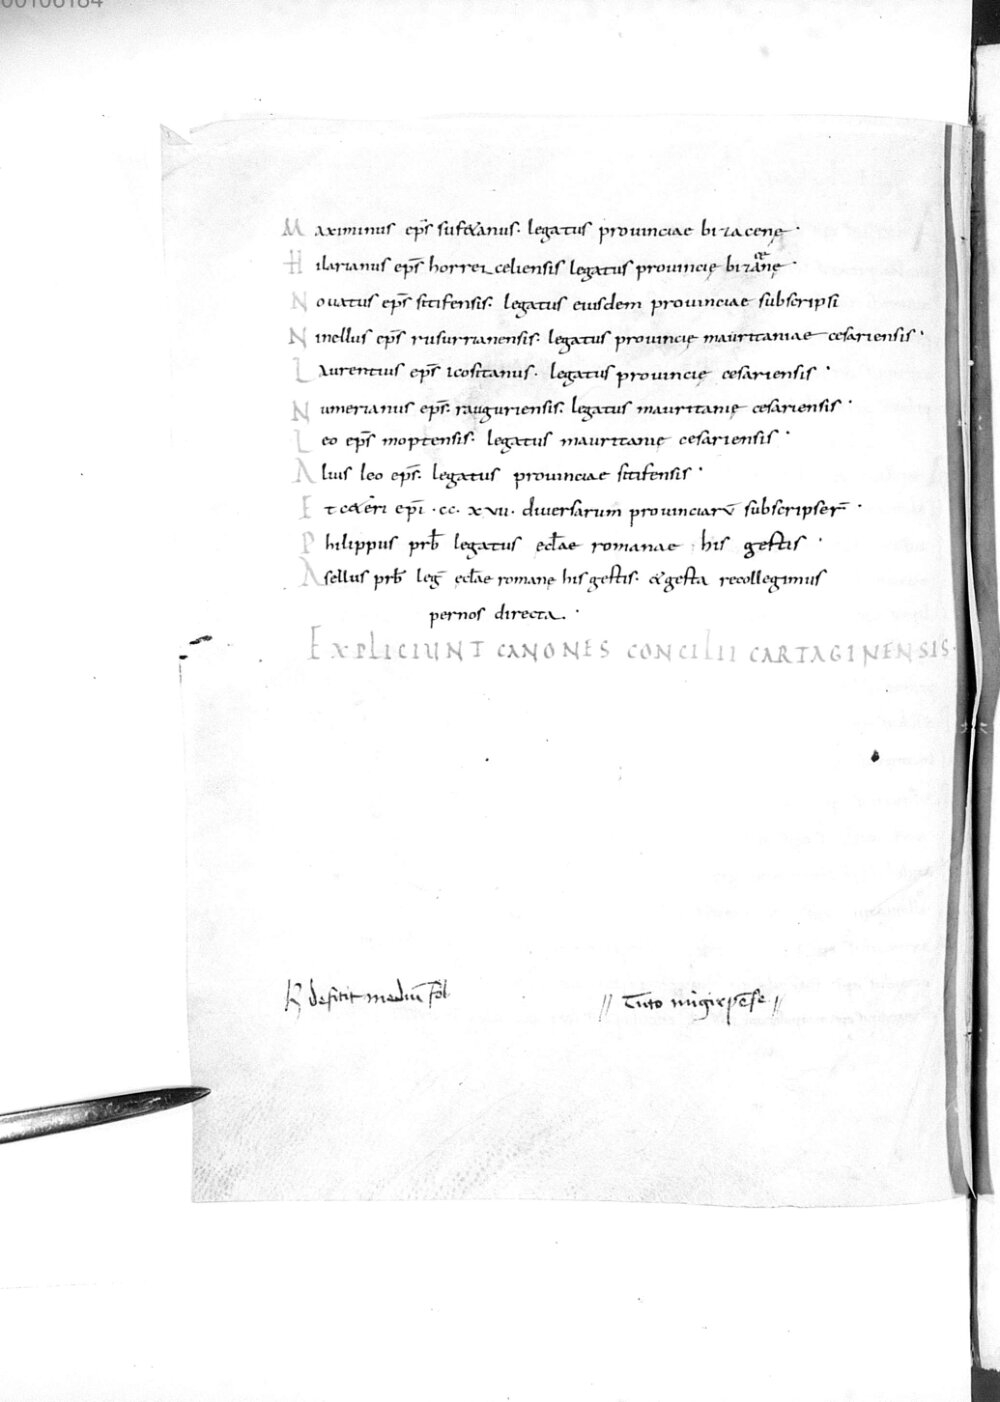 Maximinus ep̄s sufetanus. legatus prouinciae bizacenę.
Hilarianus ep̄s horrei celiensis legatus prouincię bizanę.
Nouatus ep̄s sitifensis. legatus eiusdem prouinciae subscripsi
Ninellus ep̄s rusurrianensis. legatus prouincię mauritaniae cesariensis.
Laurentius ep̄s icositanus. legatus prouincię cesariensis.
Numerianus ep̄s. rusguriensis. legatus mauritanię cesariensis.
Leo ep̄s moptensis. legatus mauritanię cesariensis.
Alius leo ep̄s. legatus prouinciae sitifensis.
Et ceteri ep̄i .cc.xvii. diuersarum prouinciarū subscripser̄.
Philippus prb̄ legatus eclae romanae his gestis.
Asellus prb̄ leḡ eclae romanę his gestis. & gesta recollegimus
pernos directa.
EXPLICIUNT CANONES CONCILII CARTAGINENSIS.
desitit mediū fol